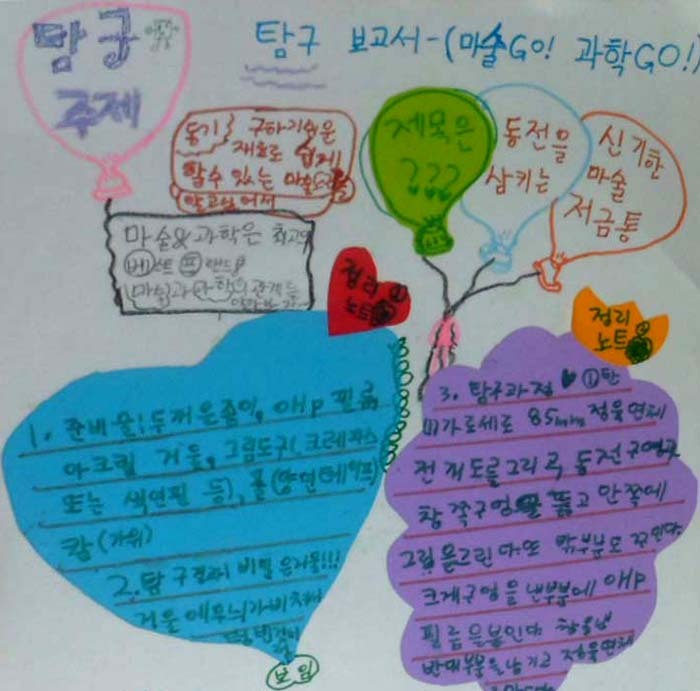 탐구
주제
탐구 보고서-(마술GO! 과학GO!)
동기 구하기쉬운
재료로 쉽게
할수 있는 마술
알고싶어서
제목은
???
동전을
삼키는
신기한
마술
저금통
마술&과학은 최고의
베스트 프랜드
마술과 과학의 관계는
정리 ①
노트
정리
노트
1. 준비물:두꺼운종이, OHP 필름
아크릴 거울, 그림도구(크레파스
또는 색연필 등), 풀(양면테이프)
칼(가위)
2. 탐구결과 비밀은거울!!!
거울에무늬가비쳐서
보임
3. 탐구과정 ♥ ①탄
(1)가로세로 85mm 정육면체
전개도를그리고 동전구멍과
창쪽구멍을 뚫고 안쪽에
그림을그린다또 밖부분도 꾸민다.
크게구멍을낸부분에 OHP
필름을붙인다 창을낸
반대부분을남기고 정육면체